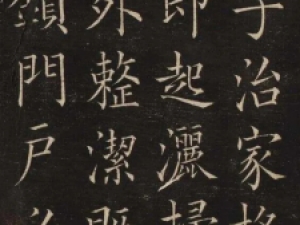 子治家格
即起灑掃
外整潔既
鎖門户